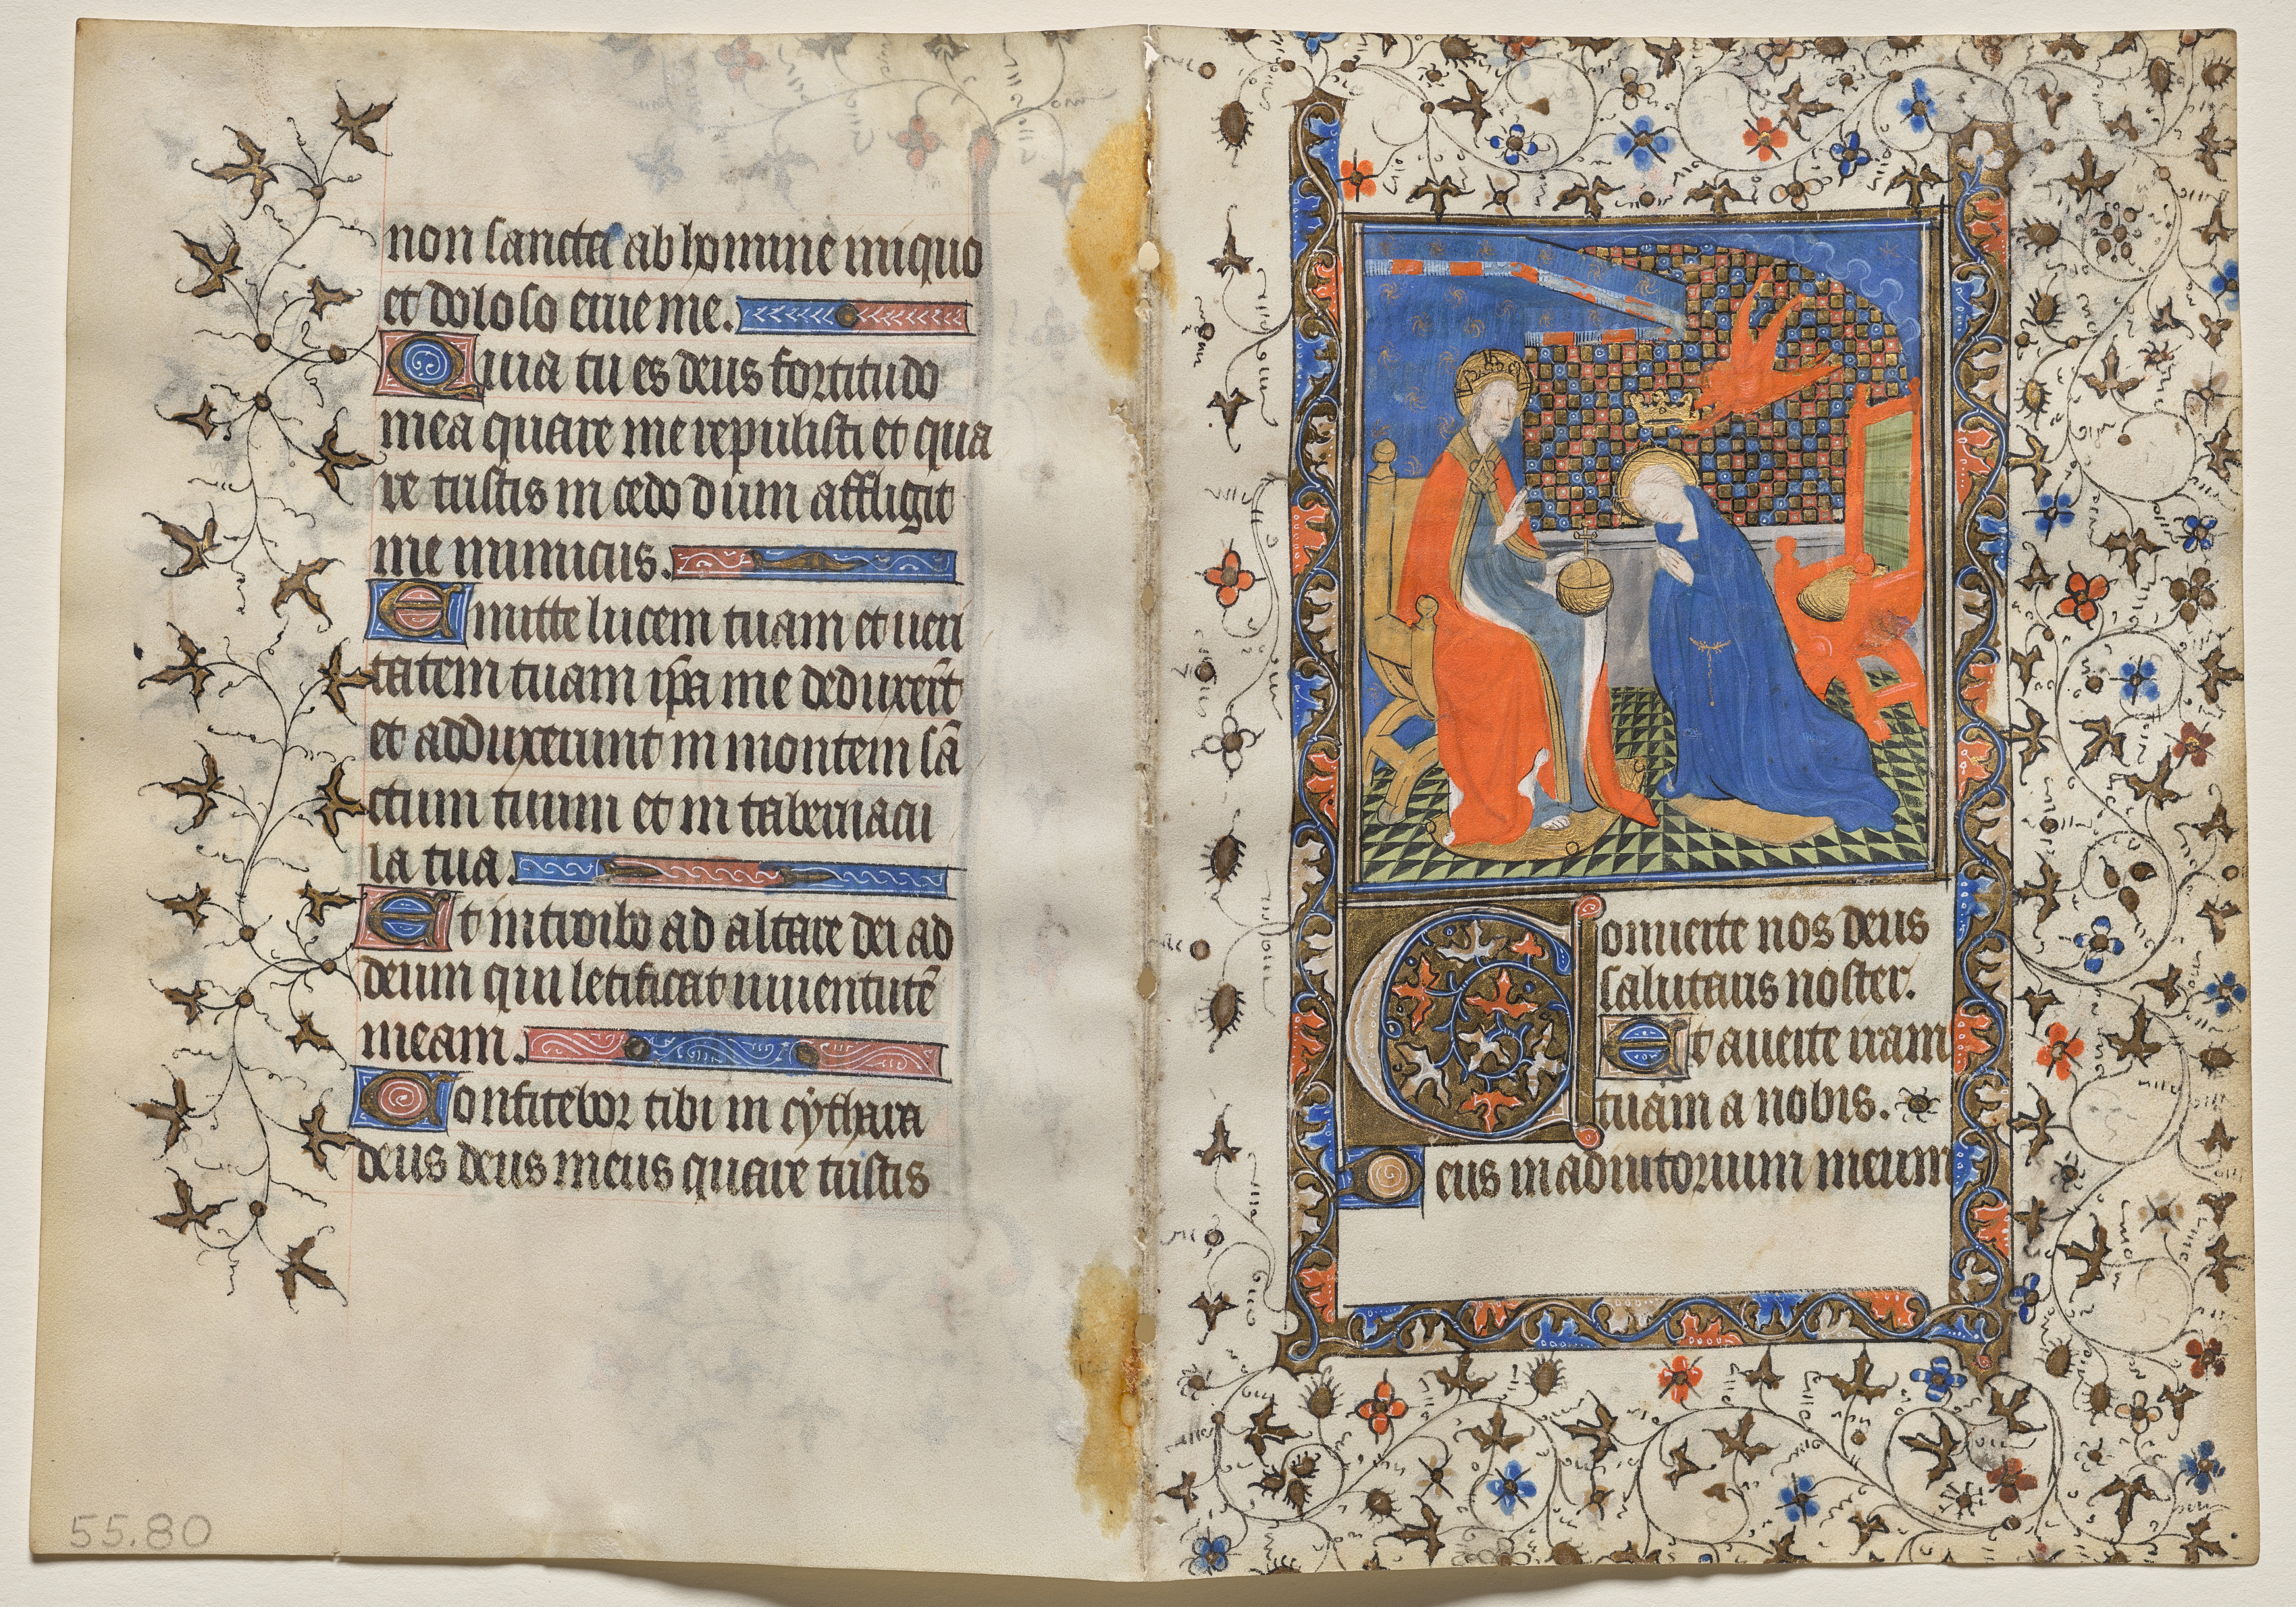 non sancta ab homine iniquo
et doloso erue me.
Quia tu es deus fortitudo
mea quare me repulisti et qua
re tristis incedo dum affligit
me inimicus.
Emitte lucem tuam et veri
tatem tuam ip̄a me deduxer̄t
et adduxerunt in montem sā
ctum tuum et in tabernacu
la tua.
Et introibo ad altare dei ad
deum qui letificat iuuentutē
meam.
Confitebor tibi in cythara
deus deus meus quare tristis
55.80
Conuerte nos deus
salutaris noster.
Et auerte iram
tuam a nobis.
Deus in adiutorium meum